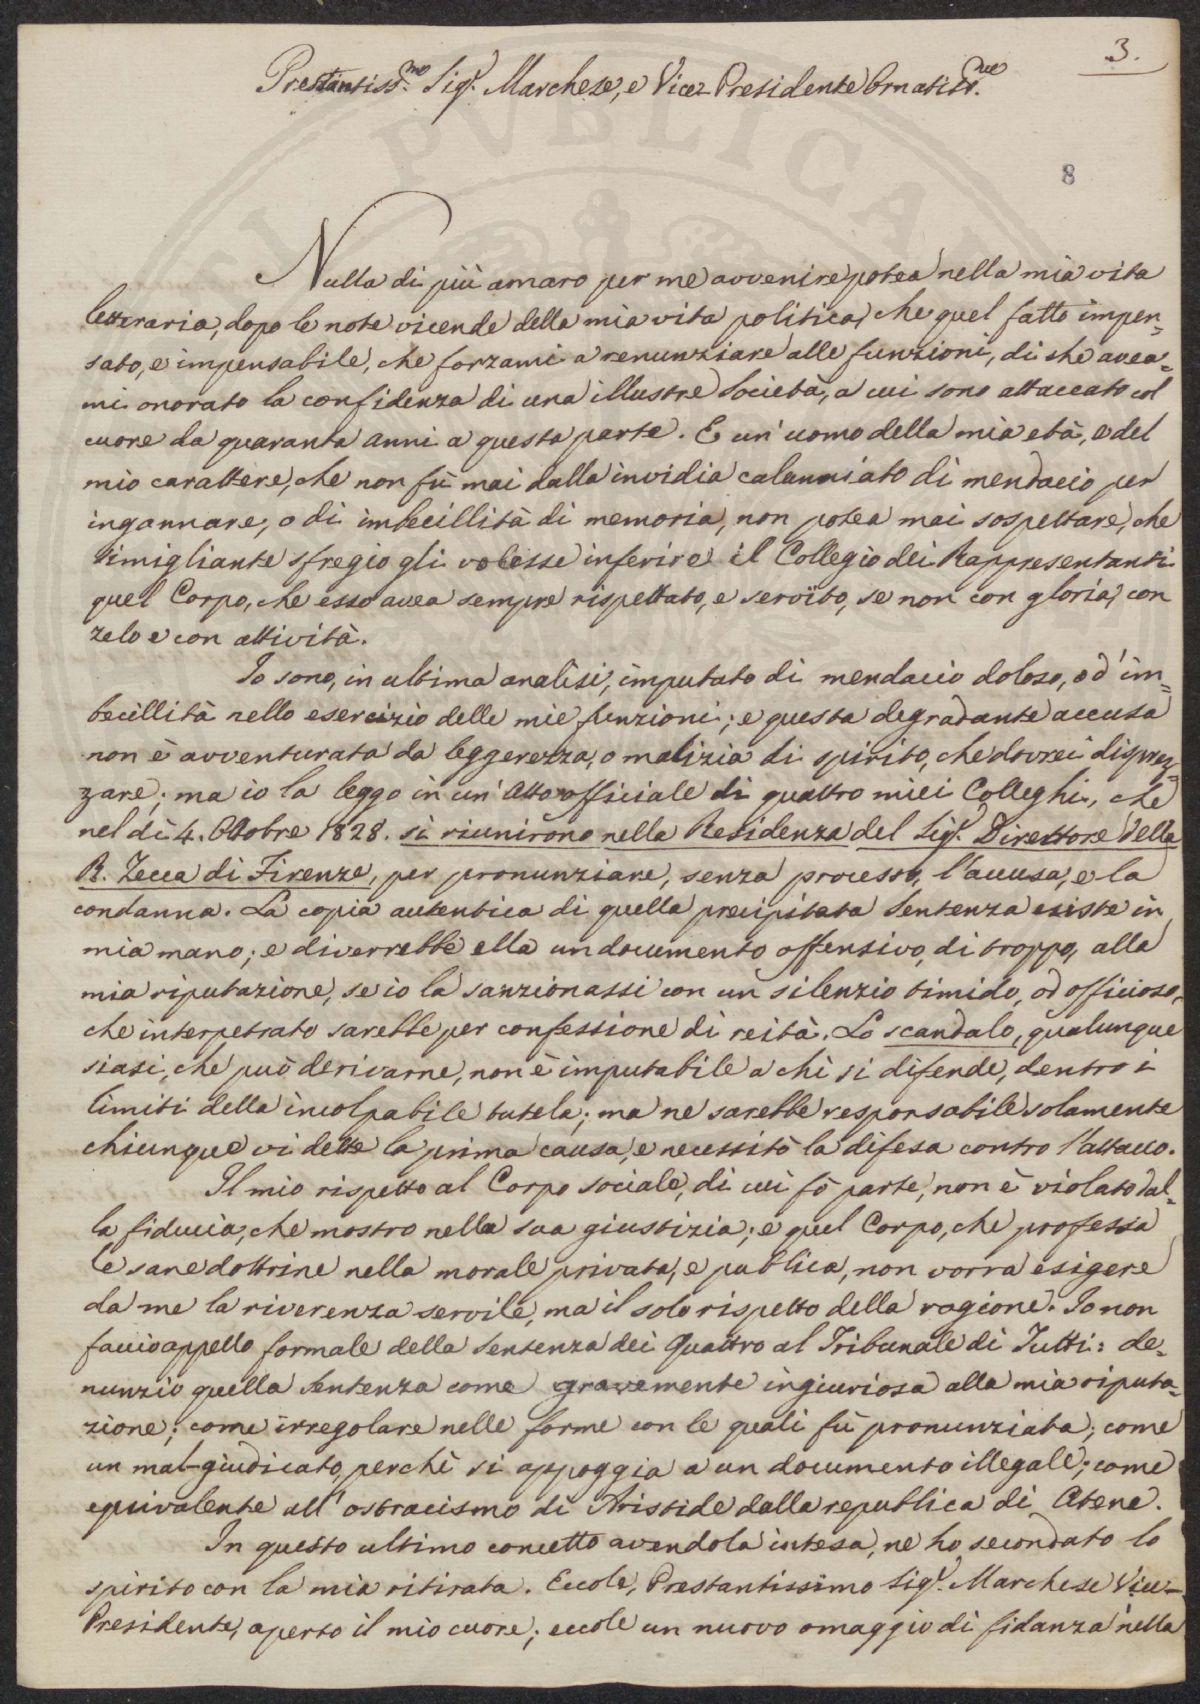 3.
Prestantiss.mo Sigr. Marchese, e Vice-Presidente Ornatiss.mo
8
Nulla di più amaro per me avvenire potea nella mia vita
letteraria, dopo le note vicende della mia vita politica, che quel fatto impen=
sato, e impensabile, che forzami a renunziare alle funzioni, di che avea=
mi onorato la confidenza di una illustre Società, a cui sono attaccato col
cuore da quaranta anni a questa parte. E un' uomo della mia età, e del
mio carattere, che non fù mai dalla invidia calunniato di mendacio per
ingannare, o di imbecillità di memoria, non potea mai sospettare, che
simigliante sfregio gli volesse inferire il Collegio dei Rappresentanti
quel Corpo, che esso avea sempre rispettato, e servito, se non con gloria, con
zelo e con attività.
Io sono, in ultima analisi, imputato di mendacio doloso, od' im=
becillità nello esercizio delle mie funzioni; e questa degradante accusa
non è avventurata da leggerezza, o malizia di spirito, che dovrei disprez=
zare; ma io la leggo in un' Atto officiale di quattro miei Colleghi, che
nel dì 4. Ottobre 1828. si riunirono nella Residenza del Sigr. Direttore della
R. Zecca di Firenze, per pronunziare, senza processo, l'accusa, e la
condanna. La copia autentica di quella precipitata Sentenza esiste in
mia mano; e diverrebbe ella un documento offensivo, di troppo, alla
mia riputazione, se io la sanzionassi con un silenzio timido, od officioso,
che interpetrato sarebbe per confessione di reità. Lo scandalo, qualunque
siasi, che può derivarne, non è imputabile a chi si difende, dentro i
limiti della incolpabile tutela; ma ne sarebbe responsabile solamente
chiunque vi dette la prima causa, e necessitò la difesa contro l'attacco.
Il mio rispetto al Corpo sociale, di cui fò parte, non è violato dal=
la fiducia, che mostro nella sua giustizia; e quel Corpo, che professa
le sane dottrine nella morale privata, e publica, non vorrà esigere
da me la riverenza servile, ma il solo rispetto della ragione. Io non
faccio appello formale della Sentenza dei Quattro al Tribunale di Tutti: de=
nunzio quella Sentenza come gravemente ingiuriosa alla mia riputa=
zione; come irregolare nelle forme con le quali fù pronunziata; come
un mal-giudicato, perchè si appoggia a un documento illegale; come
equivalente all' ostracismo di Aristide dalla republica di Atene.
In questo ultimo concetto avendola intesa, ne ho secondato lo
spirito con la mia ritirata. Eccole, Prestantissimo Sigr. Marchese Vice-
Presidente, aperto il mio cuore; eccole un nuovo omaggio di fidanza nella